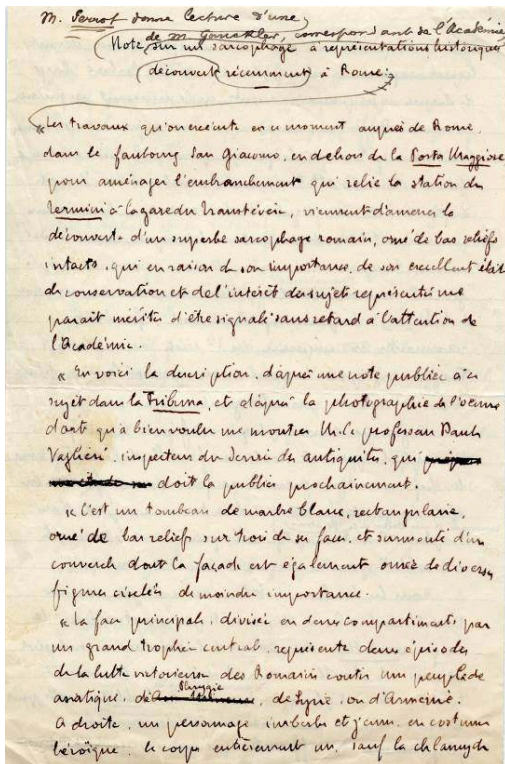 M. Perrot donne lecture d'une
de M. Gauckler, correspondant de l'Académie,
Note sur un sarcophage à représentations historiques
découvert récemment à Rome :
« Les travaux qu'on exécute en ce moment auprès de Rome,
dans le faubourg San Giacomo, en dehors de la Porta Maggiore
pour aménager l'embranchement qui relie la station de
Termini à la gare du Transtévère, viennent d'amener la
découverte d'un superbe sarcophage romain, orné de bas reliefs
intacts, qui en raison de son importance, de son excellent état
de conservation et de l'intérêt des sujets représentés me
parait mériter d'être signalé sans retard à l'attention de
l'Académie.
« En voici la description, d'après une note publiée à ce
sujet dans la Tribuna, et d'après la photographie de l'œuvre
d'art qu'a bien voulu me montrer M. le professeur Dante
Vaglieri, inspecteur du service des antiquités, qui
doit la publier prochainement.
« C'est un tombeau de marbre blanc, rectangulaire,
orné de bas reliefs sur trois de ses faces, et surmonté d'un
couvercle dont la façade est également ornée de diverses
figures ciselées de moindre importance.
« La face principale, divisée en deux compartiments par
un grand trophée central, représente deux épisodes
de la lutte victorieuse des Romains contre un peuple de
Phrygie
asiatique, de Syrie, ou d'Arménie.
A droite, un personnage imberbe et jeune, en costume
héroïque, le corps entièrement nu, sauf la chlamyde